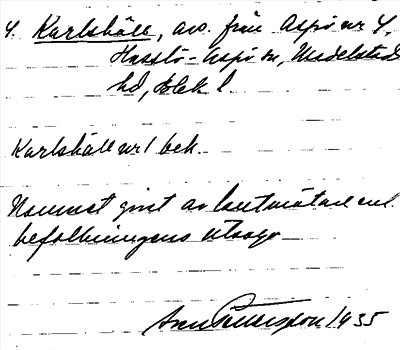 4. Karlshäll, avs. från Aspö nr 4,
Hasslö-Aspö sn, Medelstad
hd, Blek l.
Karlshäll nr 1 bek.
Namnet givet av lantmätare enl.
befolkningens utsago
1935